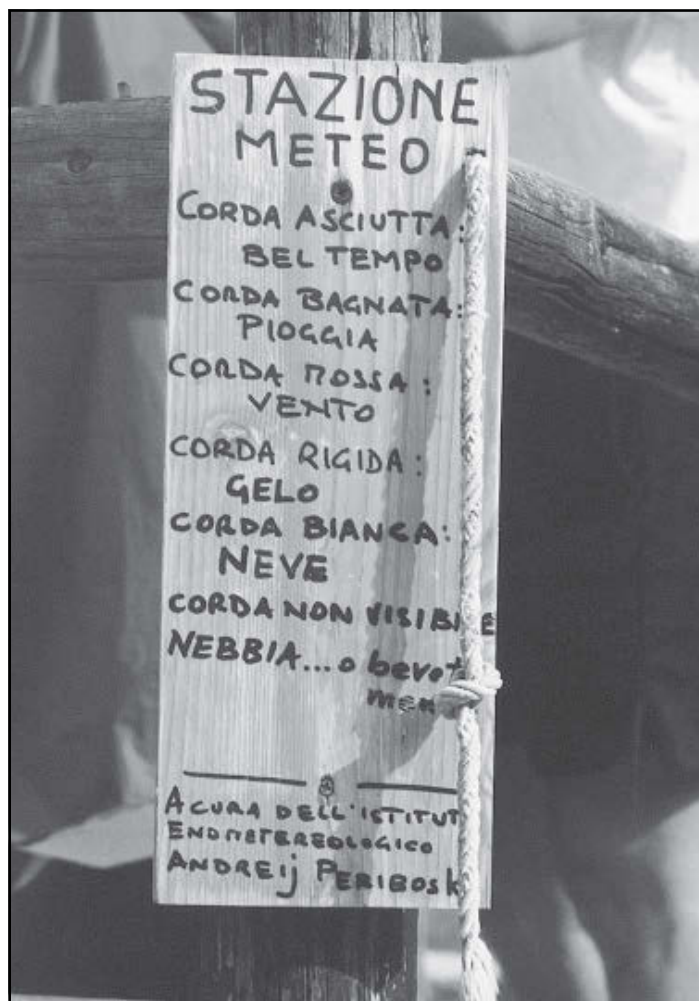 STAZIONE
METEO
CORDA ASCIUTTA:
BEL TEMPO
CORDA BAGNATA:
PIOGGIA
CORDA MOSSA:
VENTO
CORDA RIGIDA:
GELO
CORDA BIANCA:
NEVE
CORDA NON VISIBILE
NEBBIA... o bevet
men
A CURA DELL'ISTITUT
ENOMETEREOLOGICO
ANDREIj PERIBOSK